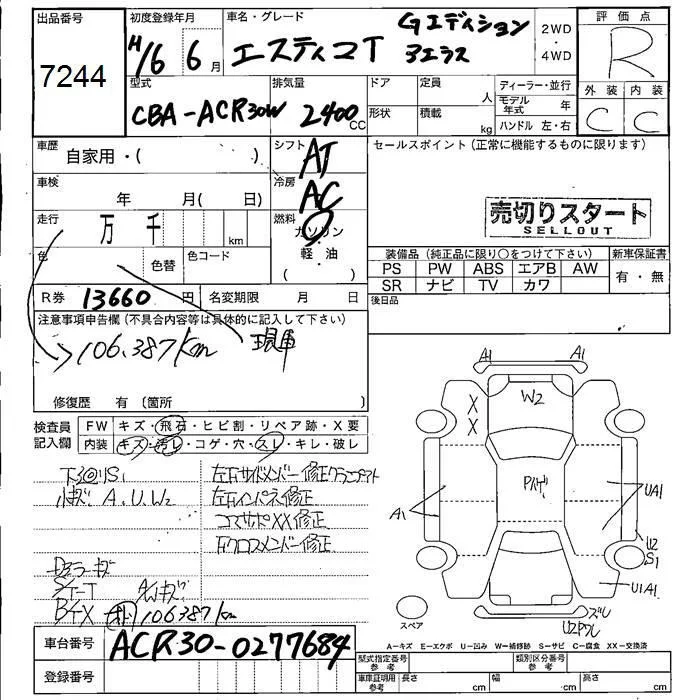 出品番号
7244
初度登録年月
H16 6月
車名・グレード
エスティマT Gエディション
アエラス
2WD
・
4WD
評価点
R
外装 内装
C C
型式
CBA-ACR30W
排気量
2400cc
ドア
形状
定員
人
積載
kg
ディーラー・並行
モデル年式 年
ハンドル 左・右
車歴
自家用・( )
シフト
AT
車検
年 月( 日)
冷房
AC
走行
万 千 km
燃料
ガソリン
・
軽・油
( )
色
色替
色コード
R券 13660 円
名変期限 月 日
セールスポイント(正常に機能するものに限ります)
売切りスタート
SELLOUT
装備品(純正品に限り○をつけて下さい)
PS PW ABS エアB AW
SR ナビ TV カワ
新車保証書
有・無
後日品
注意事項申告欄(不具合内容等は具体的に記入して下さい)
106.387km 現車
修復歴 有(箇所
検査員記入欄
FW キズ・飛石・ヒビ割・リペア跡・X要
内装 キズ・汚レ・コゲ・穴・スレ・キレ・破レ
下回りS1
小キズ A.U.W2
左右サイドメンバー修正
左右インパネ修正
コアサポXX修正
Fクロスメンバー修正
AWキズ
106387km
車台番号 ACR30-0277684
登録番号
A1 A1
W2
X
X
A1
UA1
U2
S1
U1A1
スペア
A=キズ E=エクボ U=凹み W=補修跡 S=サビ C=腐食 XX=交換済
型式指定番号
参考
類別区分番号
参考
車庫証明用
参考
長さ cm
幅 cm
高さ cm